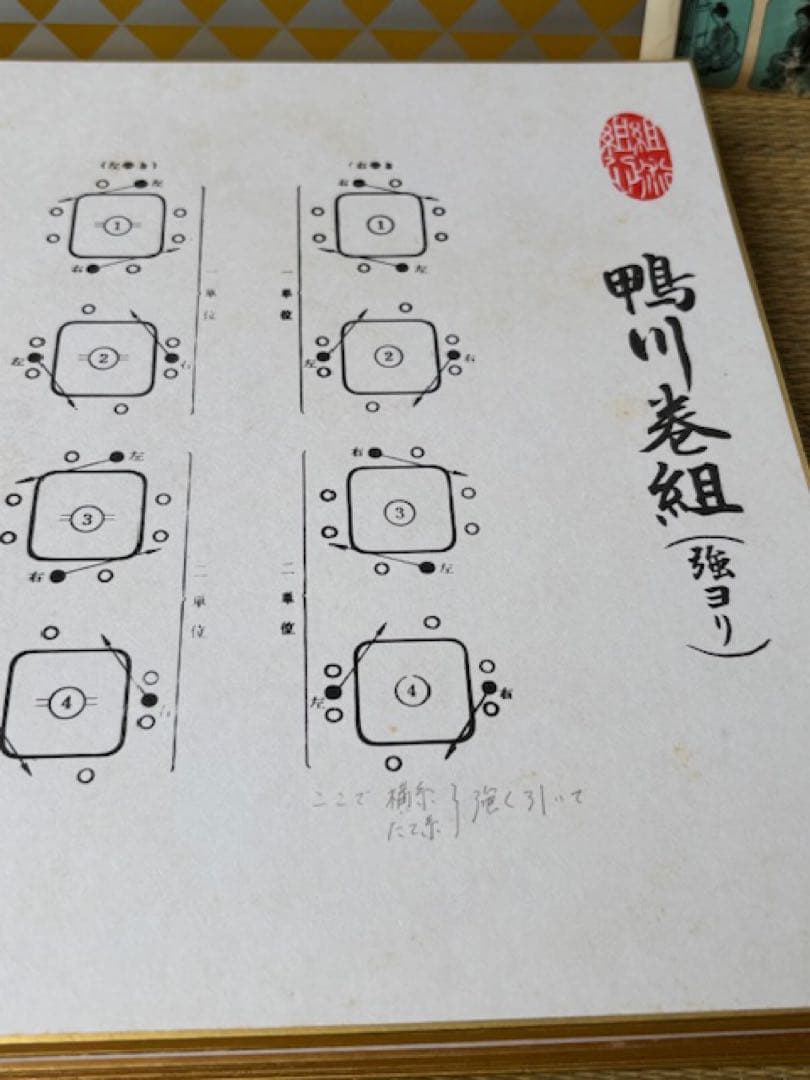 鴨川巻組
(強ヨリ)
(右巻き
右
①
左
一単位
左
②
右
右
③
左
二単位
左
④
右
(左巻き)
左
①
右
一単位
左
②
右
左
③
右
二単位
④
右
ここで 横糸 たて糸 } 強く引いて